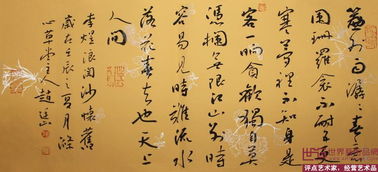 簾外雨潺潺春意
闌珊羅衾不耐五更
寒夢裡不知身是
客一晌貪歡獨自莫
憑欄無限江山別時
容易見時難流水
落花春去也天上
人間
李煜浪淘沙懷舊
歲在壬辰之夏月條
心草堂主人趙
世界艺术品網
评点艺术家，经营艺术品